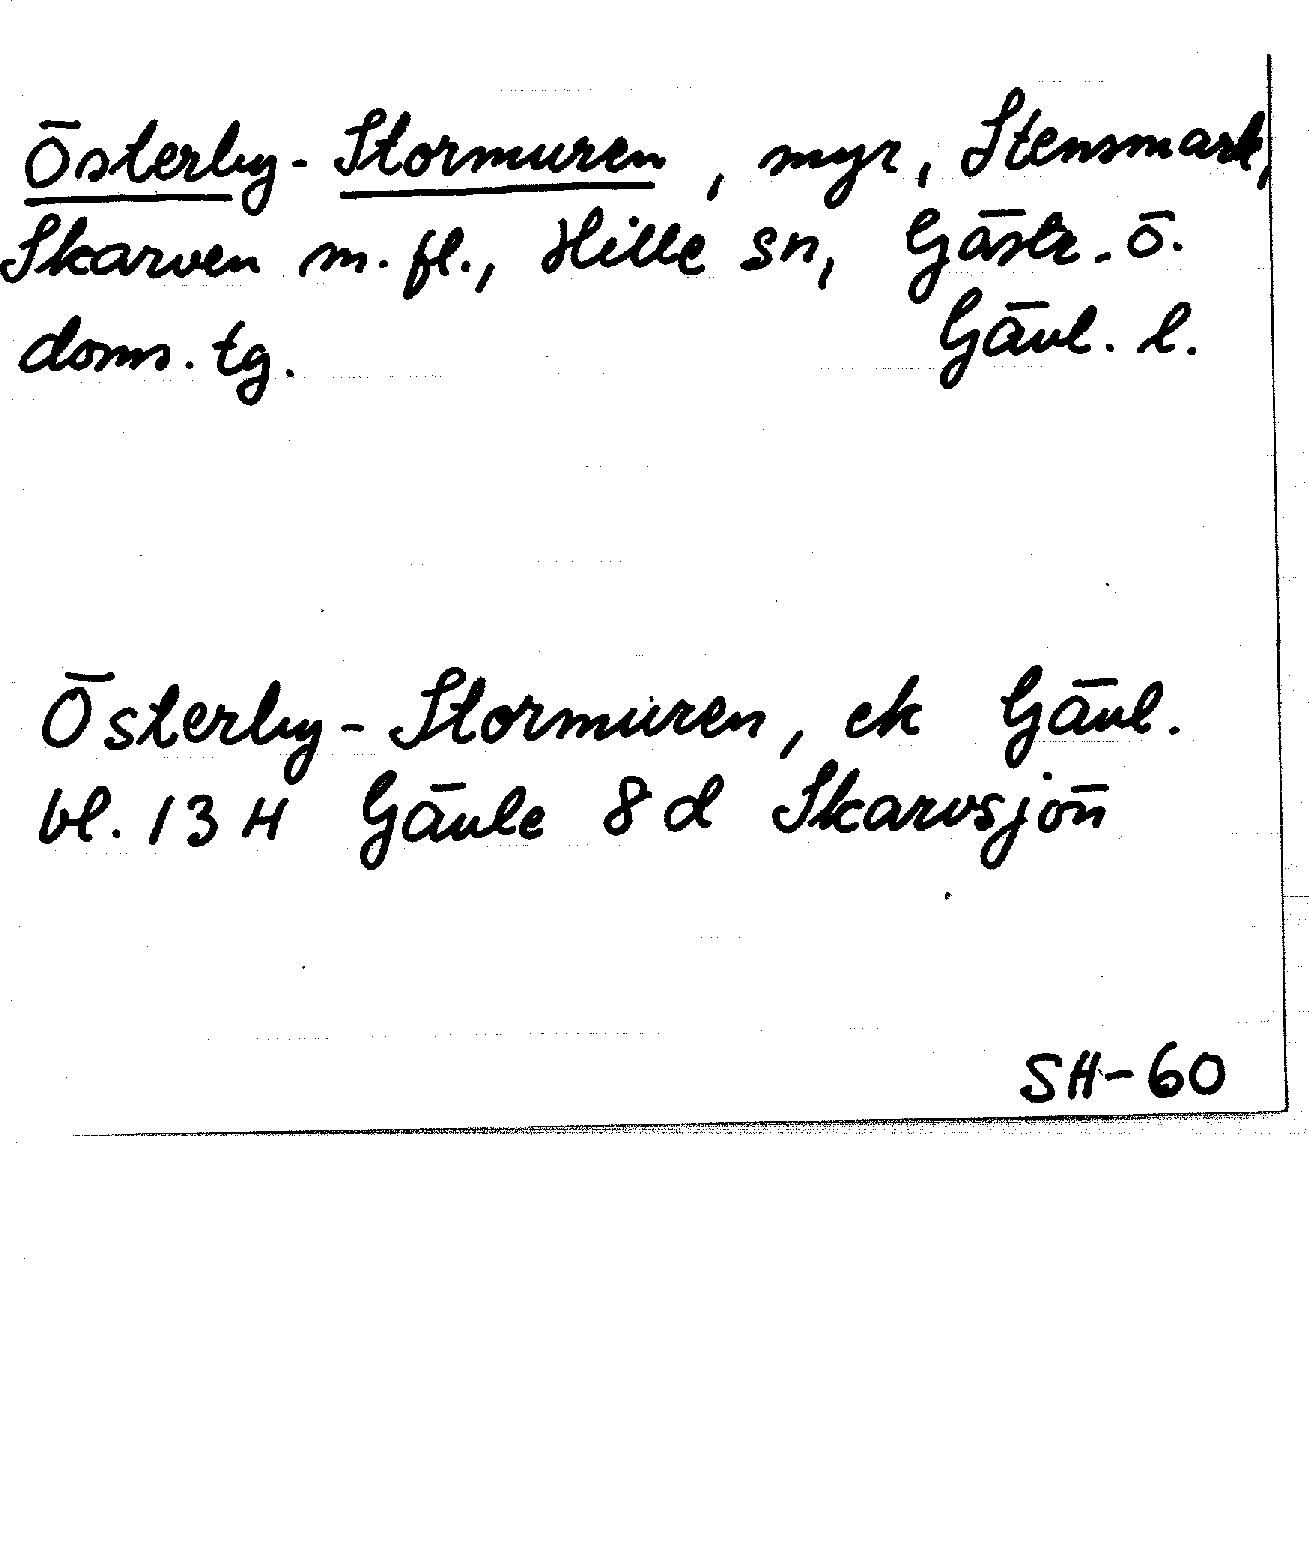 Österby-Stormuren, myr, Stensmark,
Skarven m. fl., Hille sn, Gästr. ö.
doms. tg. Gävl. l.
Österby-Stormuren, ek Gävl.
bl. 13 H Gävle 8 d Skarvsjön
SH-60